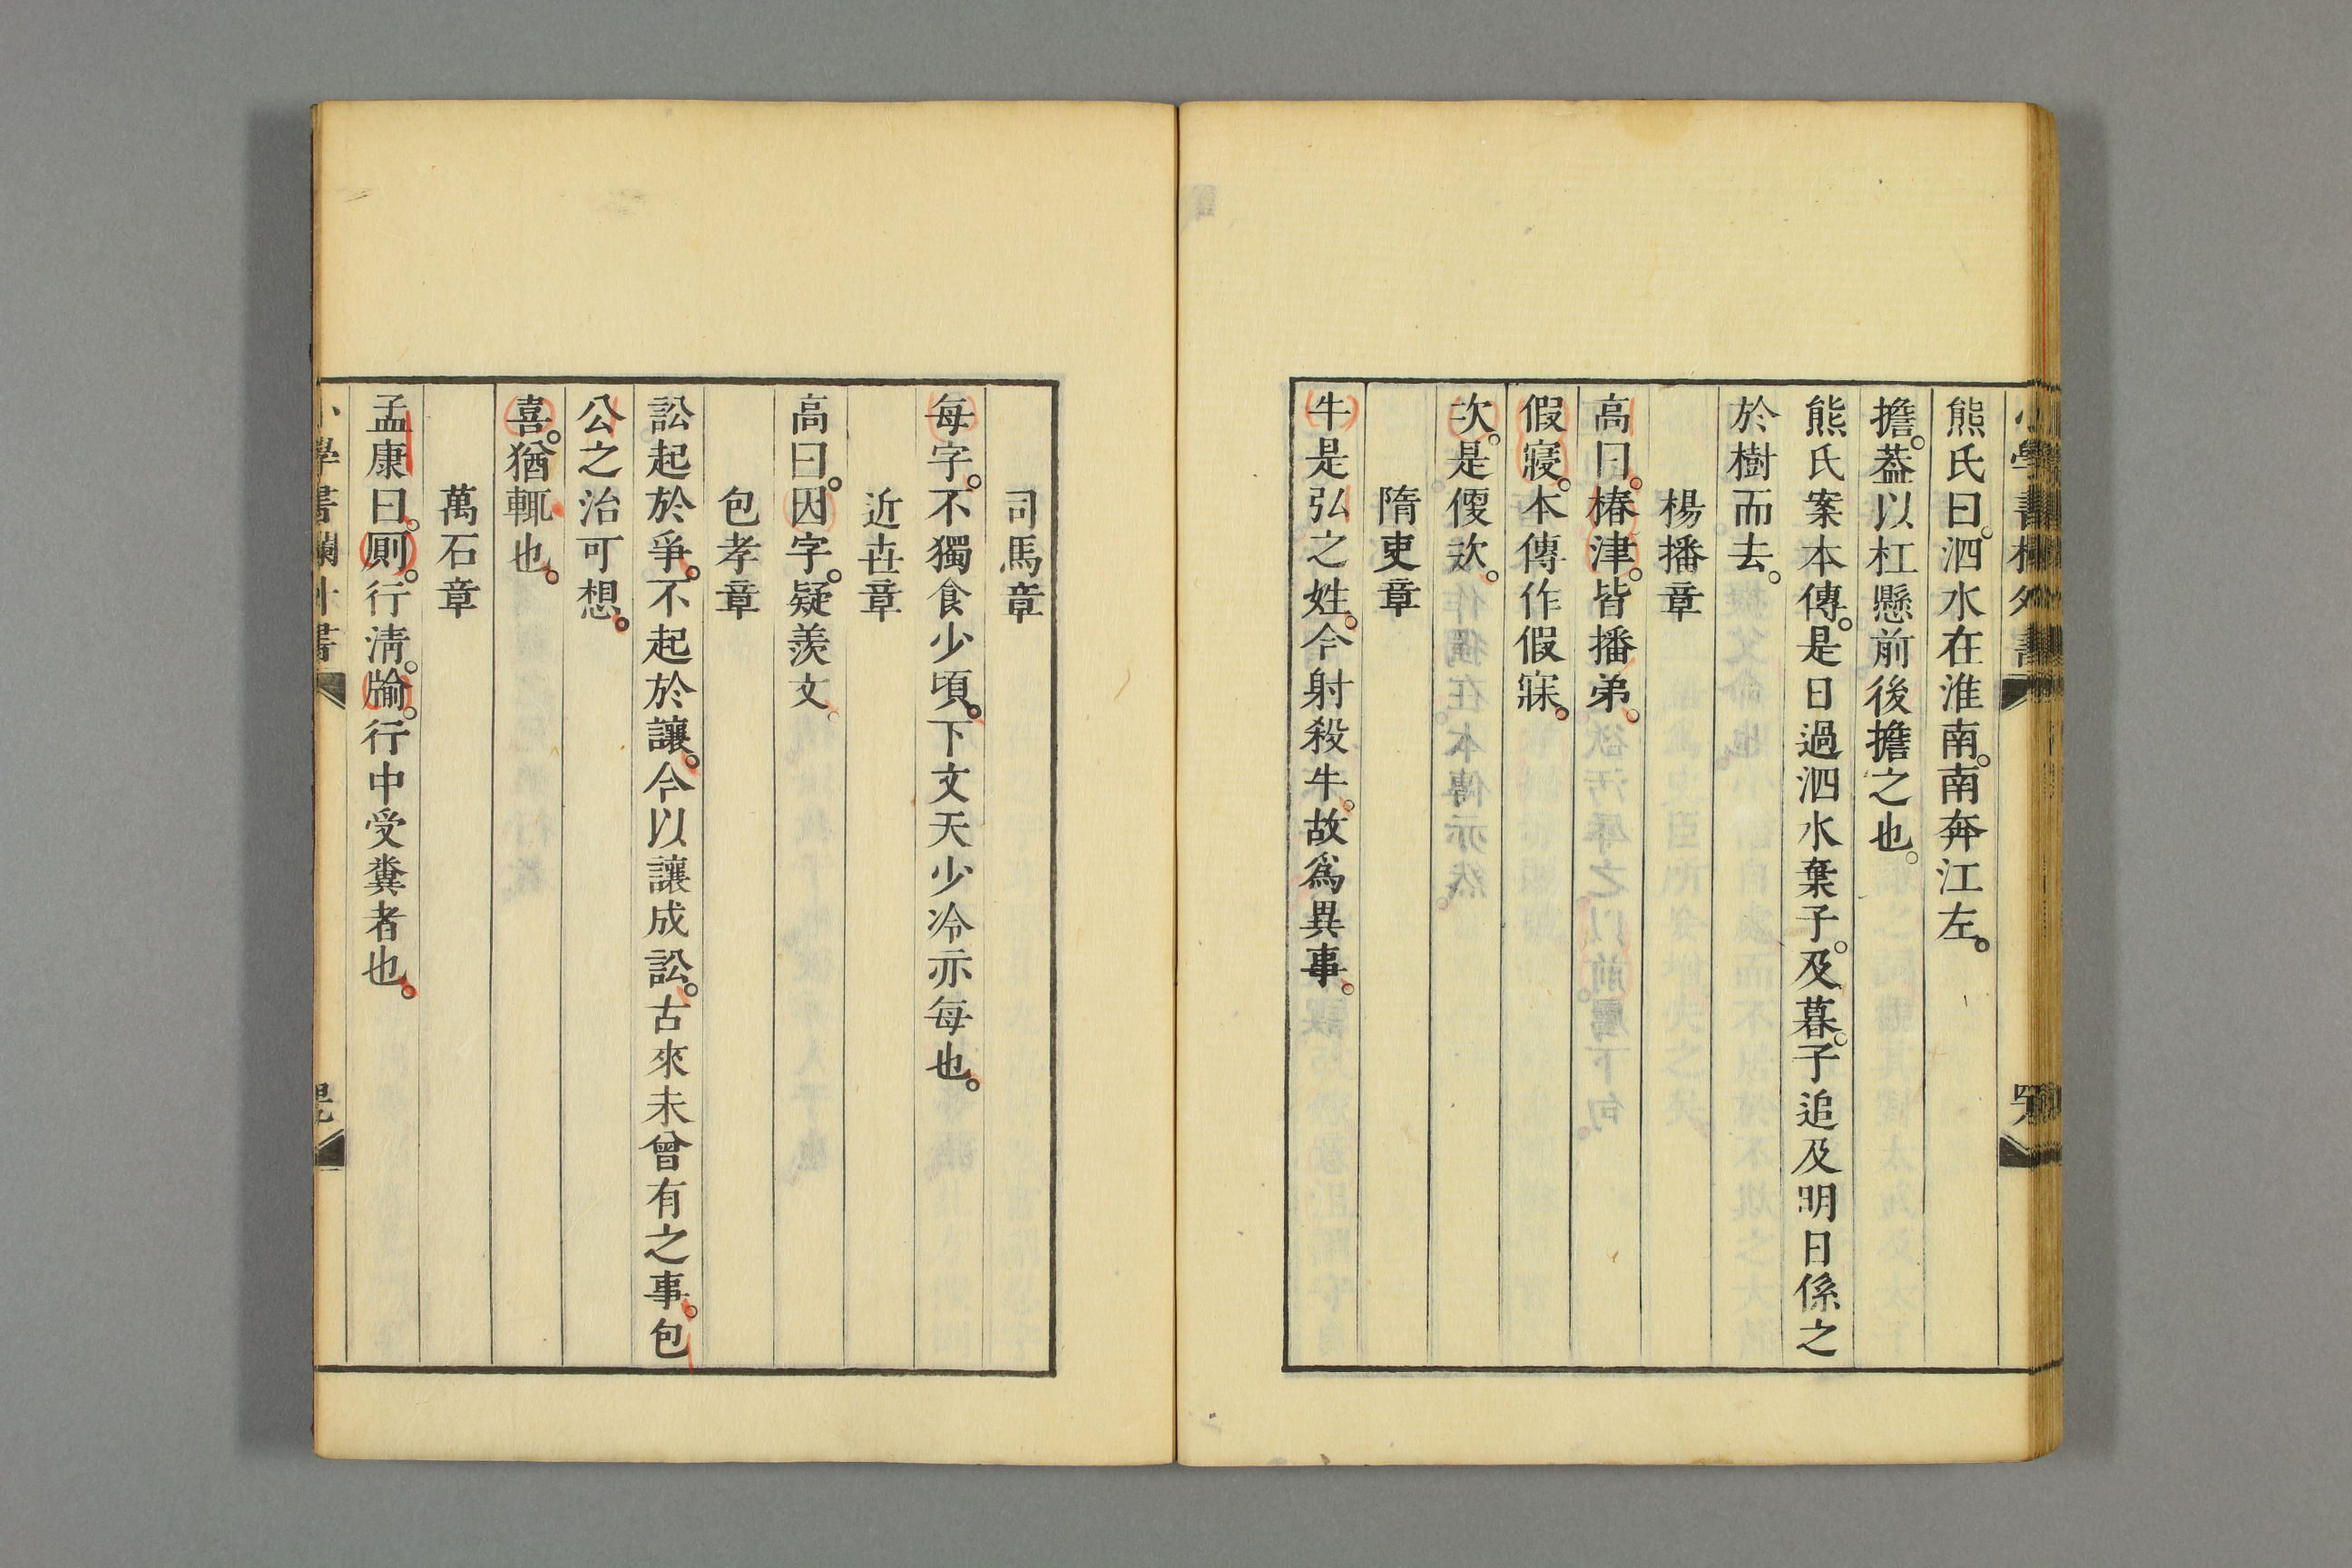 熊氏曰。泗水在淮南。南奔江左。
擔。葢以杠懸前後擔之也。
熊氏案本傳。是日過泗水棄子。及暮。子追及明日係之
於樹而去。
楊播章
高曰。椿津。皆播弟。
假寢。本傳作假寐。
次。是偃次。
隋吏章
牛是弘之姓。今射殺牛。故爲異事。
司馬章
每字。不獨食少頃。下文天少冷亦每也。
近世章
高曰。因字。疑羨文。
包孝章
訟起於爭。不起於讓。今以讓成訟。古來未曾有之事。包
公之治可想。
喜。猶輒也。
萬石章
孟康曰。厠。行淸。牏。行中受糞者也。